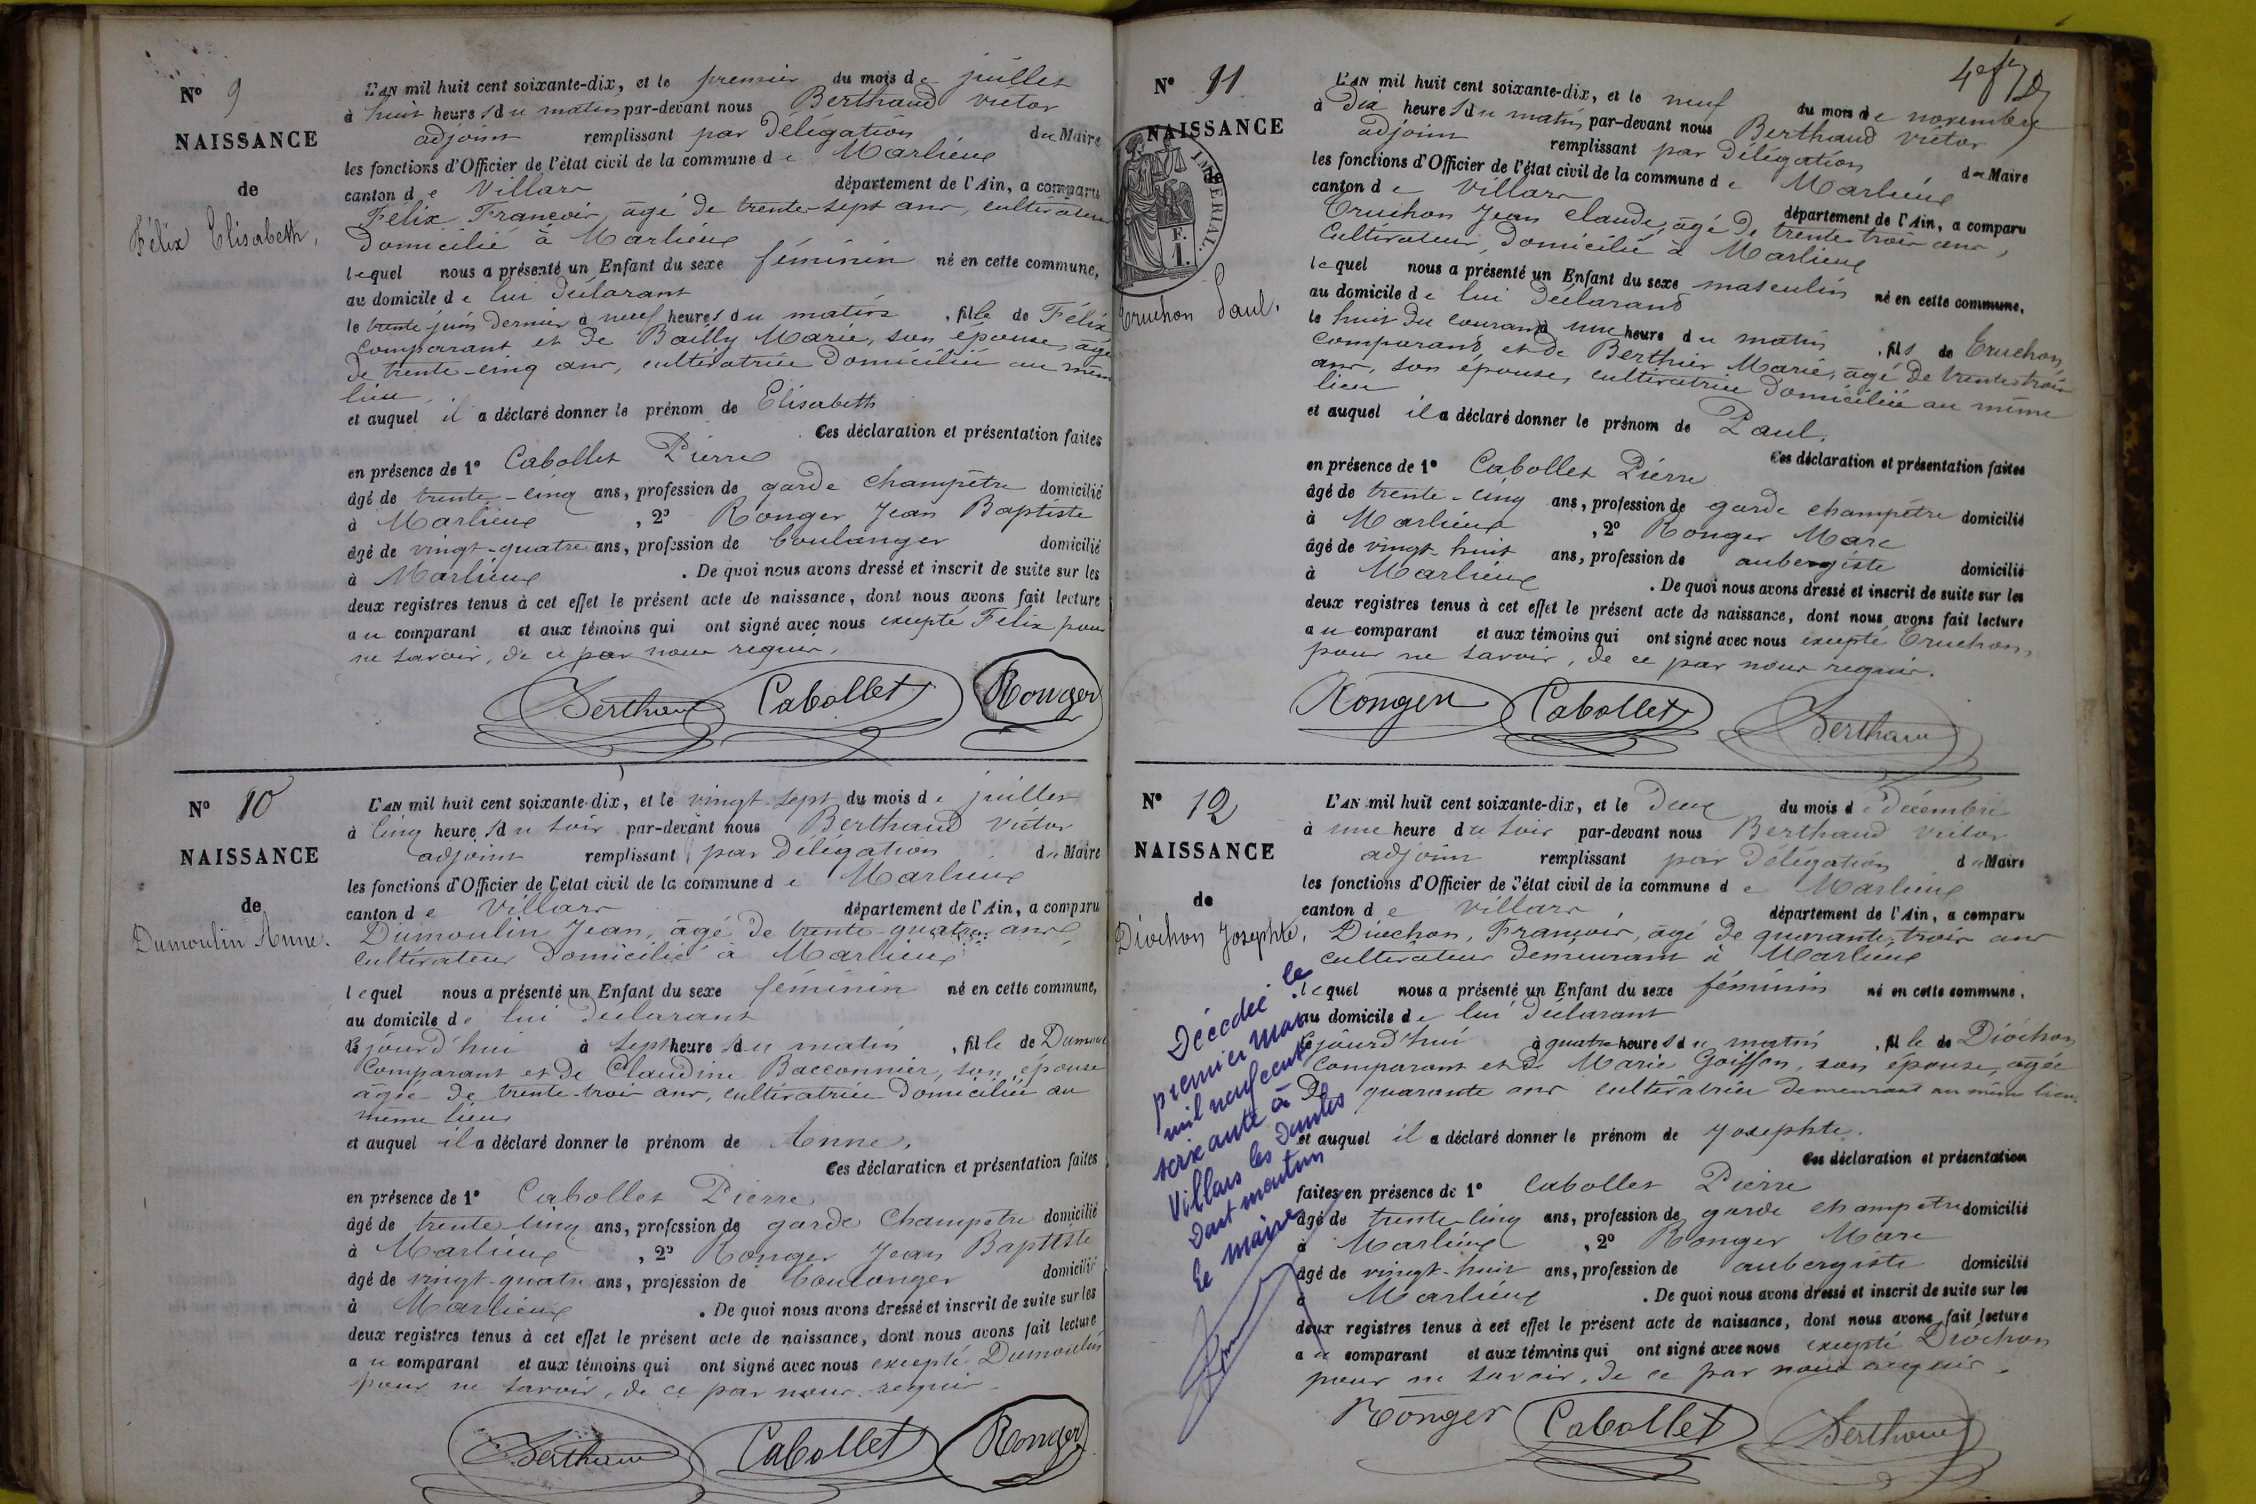 Nº 9
NAISSANCE
de
Félix Elisabeth.
L'AN mil huit cent soixante-dix, et le premier du mois de juillet
à huit heures du matin par-devant nous Berthaud victor
adjoint remplissant par Délégation du Maire
les fonctions d'Officier de l'état civil de la commune de Marlieux
canton de Villars département de l'Ain, a comparu
Félix François, âgé de trente-sept ans, cultivateur
Domicilié à Marlieux
lequel nous a présenté un Enfant du sexe féminin né en cette commune,
au domicile de lui Déclarant
le trente juin dernier à neuf heures du matin, fille de Félix
comparant et de Bailly Marie, son épouse, âgée
de trente-cinq ans, cultivatrice Domiciliée au même
lieu,
et auquel il a déclaré donner le prénom de Elisabeth
Ces déclaration et présentation faites
en présence de 1º Cabollet Pierre
âgé de trente-cinq ans, profession de garde champêtre domicilié
à Marlieux, 2º Ronger Jean Baptiste
âgé de vingt-quatre ans, profession de boulanger domicilié
à Marlieux. De quoi nous avons dressé et inscrit de suite sur les
deux registres tenus à cet effet le présent acte de naissance, dont nous avons fait lecture
au comparant et aux témoins qui ont signé avec nous excepté Félix pour
ne savoir, de ce par nous requis.
Berthaud Cabollet Ronger
Nº 10
NAISSANCE
de
Dumoulin Anne.
L'AN mil huit cent soixante-dix, et le vingt-sept du mois de juillet
à cinq heures du soir par-devant nous Berthaud victor
adjoint remplissant par Délégation du Maire
les fonctions d'Officier de l'état civil de la commune de Marlieux
canton de Villars département de l'Ain, a comparu
Dumoulin Jean, âgé de trente-quatre ans
cultivateur Domicilié à Marlieux
lequel nous a présenté un Enfant du sexe féminin né en cette commune,
au domicile de lui déclarant
le jourd'hui à sept heures du matin, fille de Dumoulin
Comparant et de Claudine Bacconnier, son épouse
âgée de trente-trois ans, cultivatrice Domiciliée au
même lieu
et auquel il a déclaré donner le prénom de Anne.
Ces déclaration et présentation faites
en présence de 1º Cabollet Pierre
âgé de trente cinq ans, profession de garde champêtre domicilié
à Marlieux, 2º Ronger Jean Baptiste
âgé de vingt-quatre ans, profession de boulanger domicilié
à Marlieux. De quoi nous avons dressé et inscrit de suite sur les
deux registres tenus à cet effet le présent acte de naissance, dont nous avons fait lecture
au comparant et aux témoins qui ont signé avec nous excepté Dumoulin
pour ne savoir, de ce par nous requis
Berthaud Cabollet Ronger
Nº 11
NAISSANCE
de
IMPERIAL.
F.
1.
Cruchon Paul.
L'AN mil huit cent soixante-dix, et le neuf du mois de novembre
à Dix heures du matin par-devant nous Berthaud victor
adjoint remplissant par Délégation du Maire
les fonctions d'Officier de l'état civil de la commune de Marlieux
canton de Villars département de l'Ain, a comparu
Cruchon Jean Claude, âgé de trente trois ans,
Cultivateur, Domicilié à Marlieux
lequel nous a présenté un Enfant du sexe masculin né en cette commune,
au domicile de lui Déclarant
le huit du courant à une heure du matin, fils de Cruchon,
comparant et de Berthier Marie, âgé de trente trois
ans, son épouse, cultivatrice Domiciliée au même
lieu
et auquel il a déclaré donner le prénom de Paul.
Ces déclaration et présentation faites
en présence de 1º Cabollet Pierre
âgé de trente-cinq ans, profession de garde champêtre domicilié
à Marlieux, 2º Ronger Marc
âgé de vingt-huit ans, profession de aubergiste domicilié
à Marlieux. De quoi nous avons dressé et inscrit de suite sur les
deux registres tenus à cet effet le présent acte de naissance, dont nous avons fait lecture
au comparant et aux témoins qui ont signé avec nous excepté Cruchon,
pour ne savoir, de ce par nous requis.
Ronger Cabollet Berthaud
Nº 12
NAISSANCE
de
Diochon Josephte.
L'AN mil huit cent soixante-dix, et le Deux du mois de décembre
à une heure du soir par-devant nous Berthaud victor
adjoint remplissant par Délégation du Maire
les fonctions d'Officier de l'état civil de la commune de Marlieux
canton de Villars département de l'Ain, a comparu
Diochon, François, âgé de quarante-trois ans
cultivateur Demeurant à Marlieux
lequel nous a présenté un Enfant du sexe féminin né en cette commune,
au domicile de lui déclarant
le jourd'hui à quatre heures du matin, fille de Diochon
Comparant et de Marie Goiffon, son épouse, agée
De quarante ans cultivatrice demeurant au même lieu.
et auquel il a déclaré donner le prénom de Josephte.
Ces déclaration et présentation
faites en présence de 1º Cabollet Pierre
âgé de trente-cinq ans, profession de garde champêtre domicilié
à Marlieux, 2º Ronger Marc
âgé de vingt-huit ans, profession de aubergiste domicilié
à Marlieux. De quoi nous avons dressé et inscrit de suite sur les
deux registres tenus à cet effet le présent acte de naissance, dont nous avons fait lecture
au comparant et aux témoins qui ont signé avec nous excepté Diochon
pour ne savoir, de ce par nous requis.
Ronger Cabollet Berthaud
Décédée le
premier mars
mil neuf cent
soixante à
Villars les Dombes
Le maire